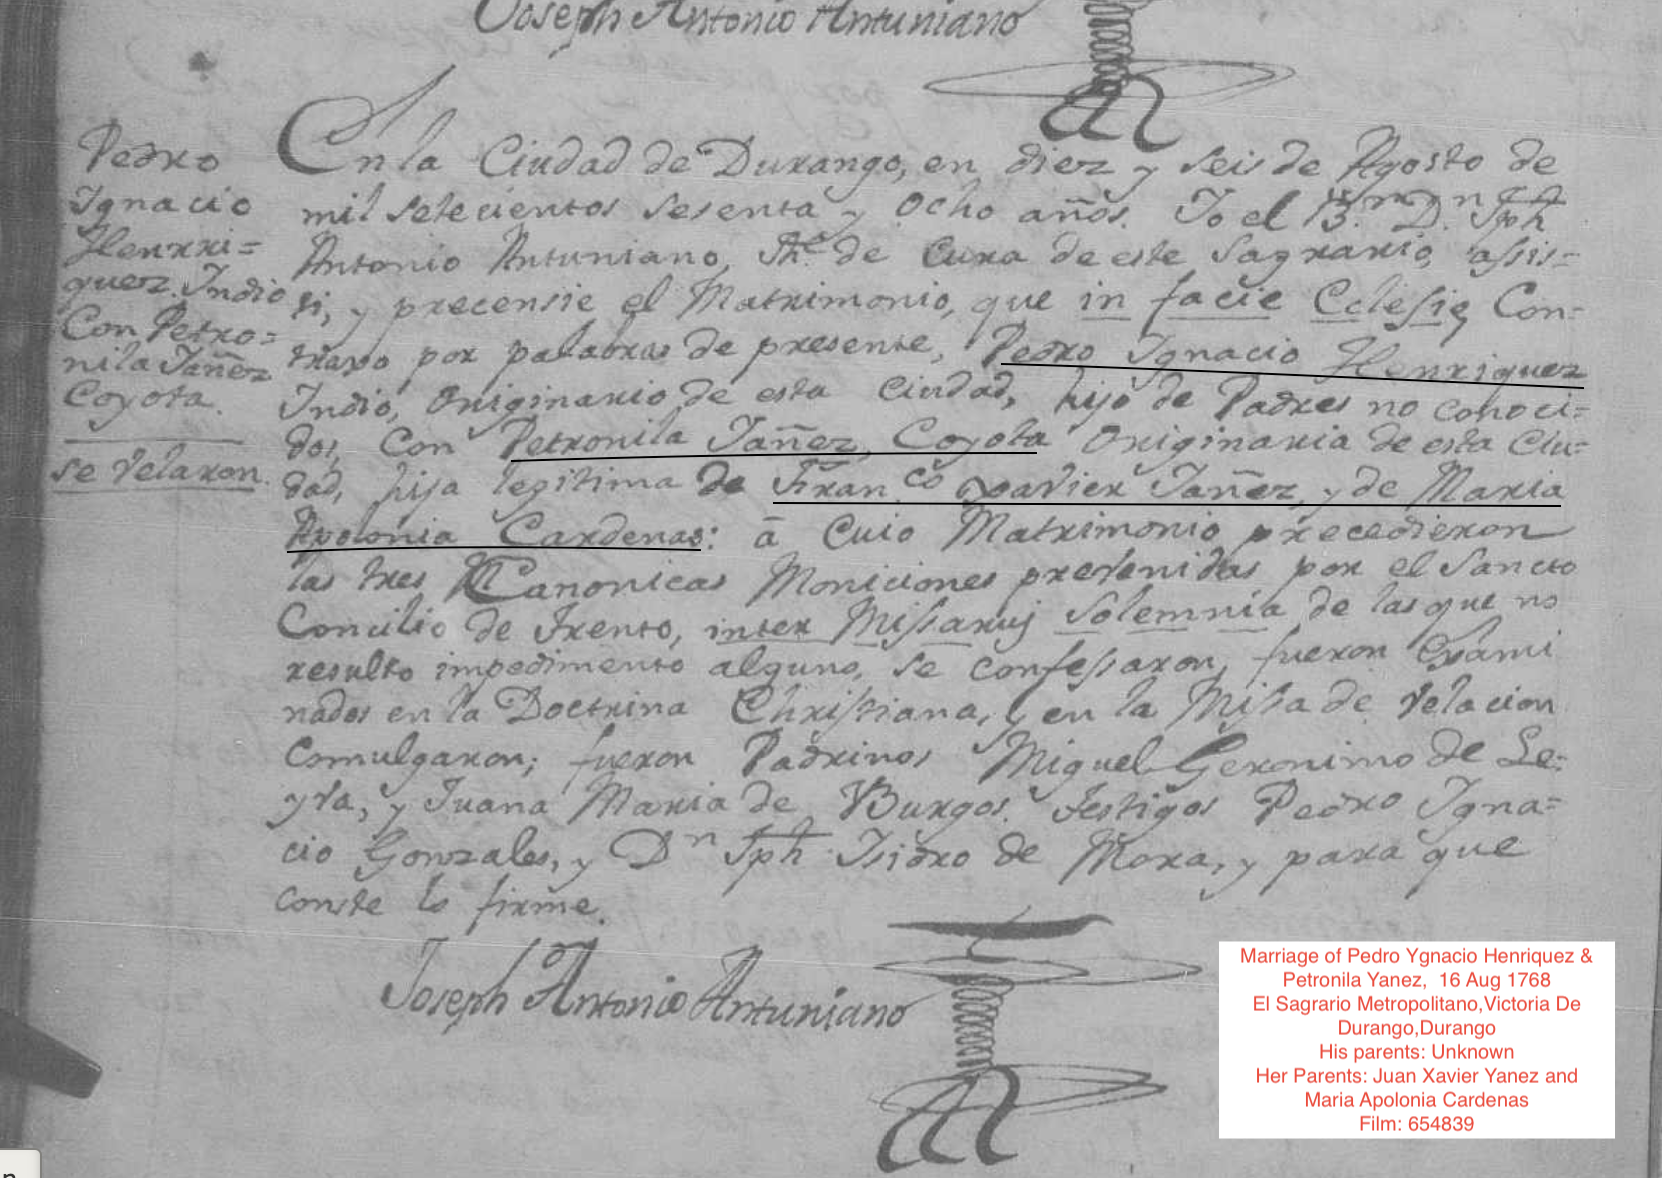 Joseph Antonio Antuniano
Pedro
Ignacio
Henrri=
quez. Indio
Con Petro=
nila Iañez
Coyota.
se velaron.
En la Ciudad de Durango, en diez y seis de Agosto de
mil setecientos sesenta y ocho años. Yo el Br. Dn. Jph
Antonio Antuniano, The. de Cura de este Sagrario, assis=
ti, y precensie el Matrimonio, que in facie Eclesię Con=
traxo por palabras de presente, Pedro Ignacio Henriquez
Indio, Originario de esta Ciudad, hijo de Padres no conoci=
dos, Con Petronila Iañez, Coyota Originaria de esta Ciu=
dad, hija legitima de Franco. Xavier Iañez, y de Maria
Apolonia Cardenas: â Cuio Matrimonio precedieron
las tres Canonicas Moniciones prevenidas por el Sancto
Concilio de Trento, inter Missaruȝ Solemnia de las que no
resulto impedimento alguno, se confessaron, fueron Exami
nados en la Doctrina Christiana, y en la Missa de Velacion
Comulgaron; fueron Padrinos Miguel Geronimo de Le=
yva, y Juana Maria de Burgos. Testigos Pedro Igna=
cio Gonzales, y Dn Jph Isidro de Mora, y para que
conste lo firme.
Joseph Antonio Antuniano
Marriage of Pedro Ygnacio Henriquez &
Petronila Yanez, 16 Aug 1768
El Sagrario Metropolitano,Victoria De
Durango,Durango
His parents: Unknown
Her Parents: Juan Xavier Yanez and
Maria Apolonia Cardenas
Film: 654839